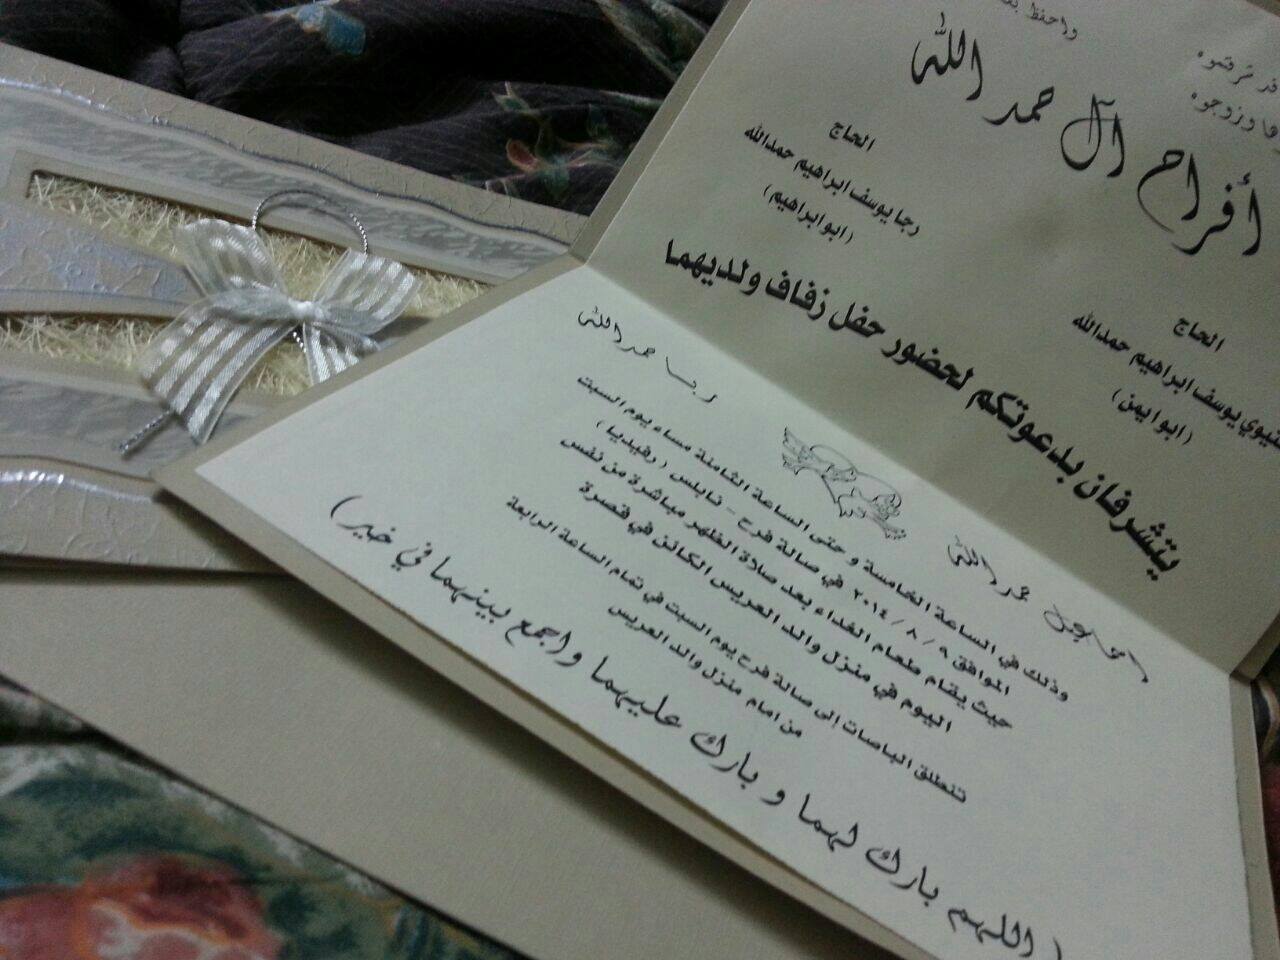 واحفظ
أفراح آل حمد الله
الحاج
يوسف ابراهيم حمدالله
(ابوايمن)
الحاج
رجا يوسف ابراهيم حمدالله
(ابوابراهيم)
يتشرفان بدعوتكم لحضور حفل زفاف ولديهما
حمد الله
ربا حمد الله
وذلك في الساعة الخامسة وحتى الساعة الثامنة مساء يوم السبت
الموافق ٩ / ٨ / ٢٠١٤ في صالة فرح - نابلس (رفيديا)
حيث يقام طعام الغداء بعد صلاة الظهر مباشرة من نفس
اليوم في منزل والد العريس الكائن في قصرة
تنطلق الباصات إلى صالة فرح يوم السبت في تمام الساعة الرابعة
من امام منزل والد العريس
(اللهم بارك لهما و بارك عليهما واجمع بينهما في خير)